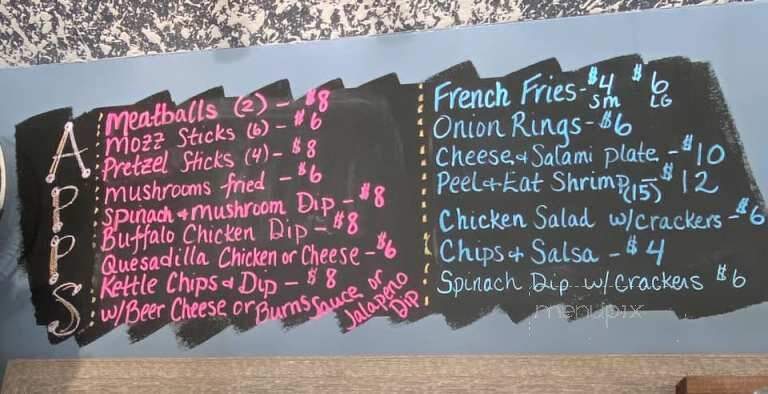 APPS
Meatballs (2) - $8
Mozz Sticks (6) - $6
Pretzel Sticks (4) - $8
mushrooms fried - $6
Spinach + mushroom Dip - $8
Buffalo Chicken Dip - $8
Quesadilla Chicken or Cheese - $6
Kettle Chips + Dip - $8
w/Beer Cheese or Burns Sauce or Jalapeno Dip
French Fries - $4 $6
SM LG
Onion Rings - $6
Cheese + Salami plate - $10
Peel + Eat Shrimp (15) - $12
Chicken Salad w/crackers - $6
Chips + Salsa - $4
Spinach Dip w/Crackers $6
menupix